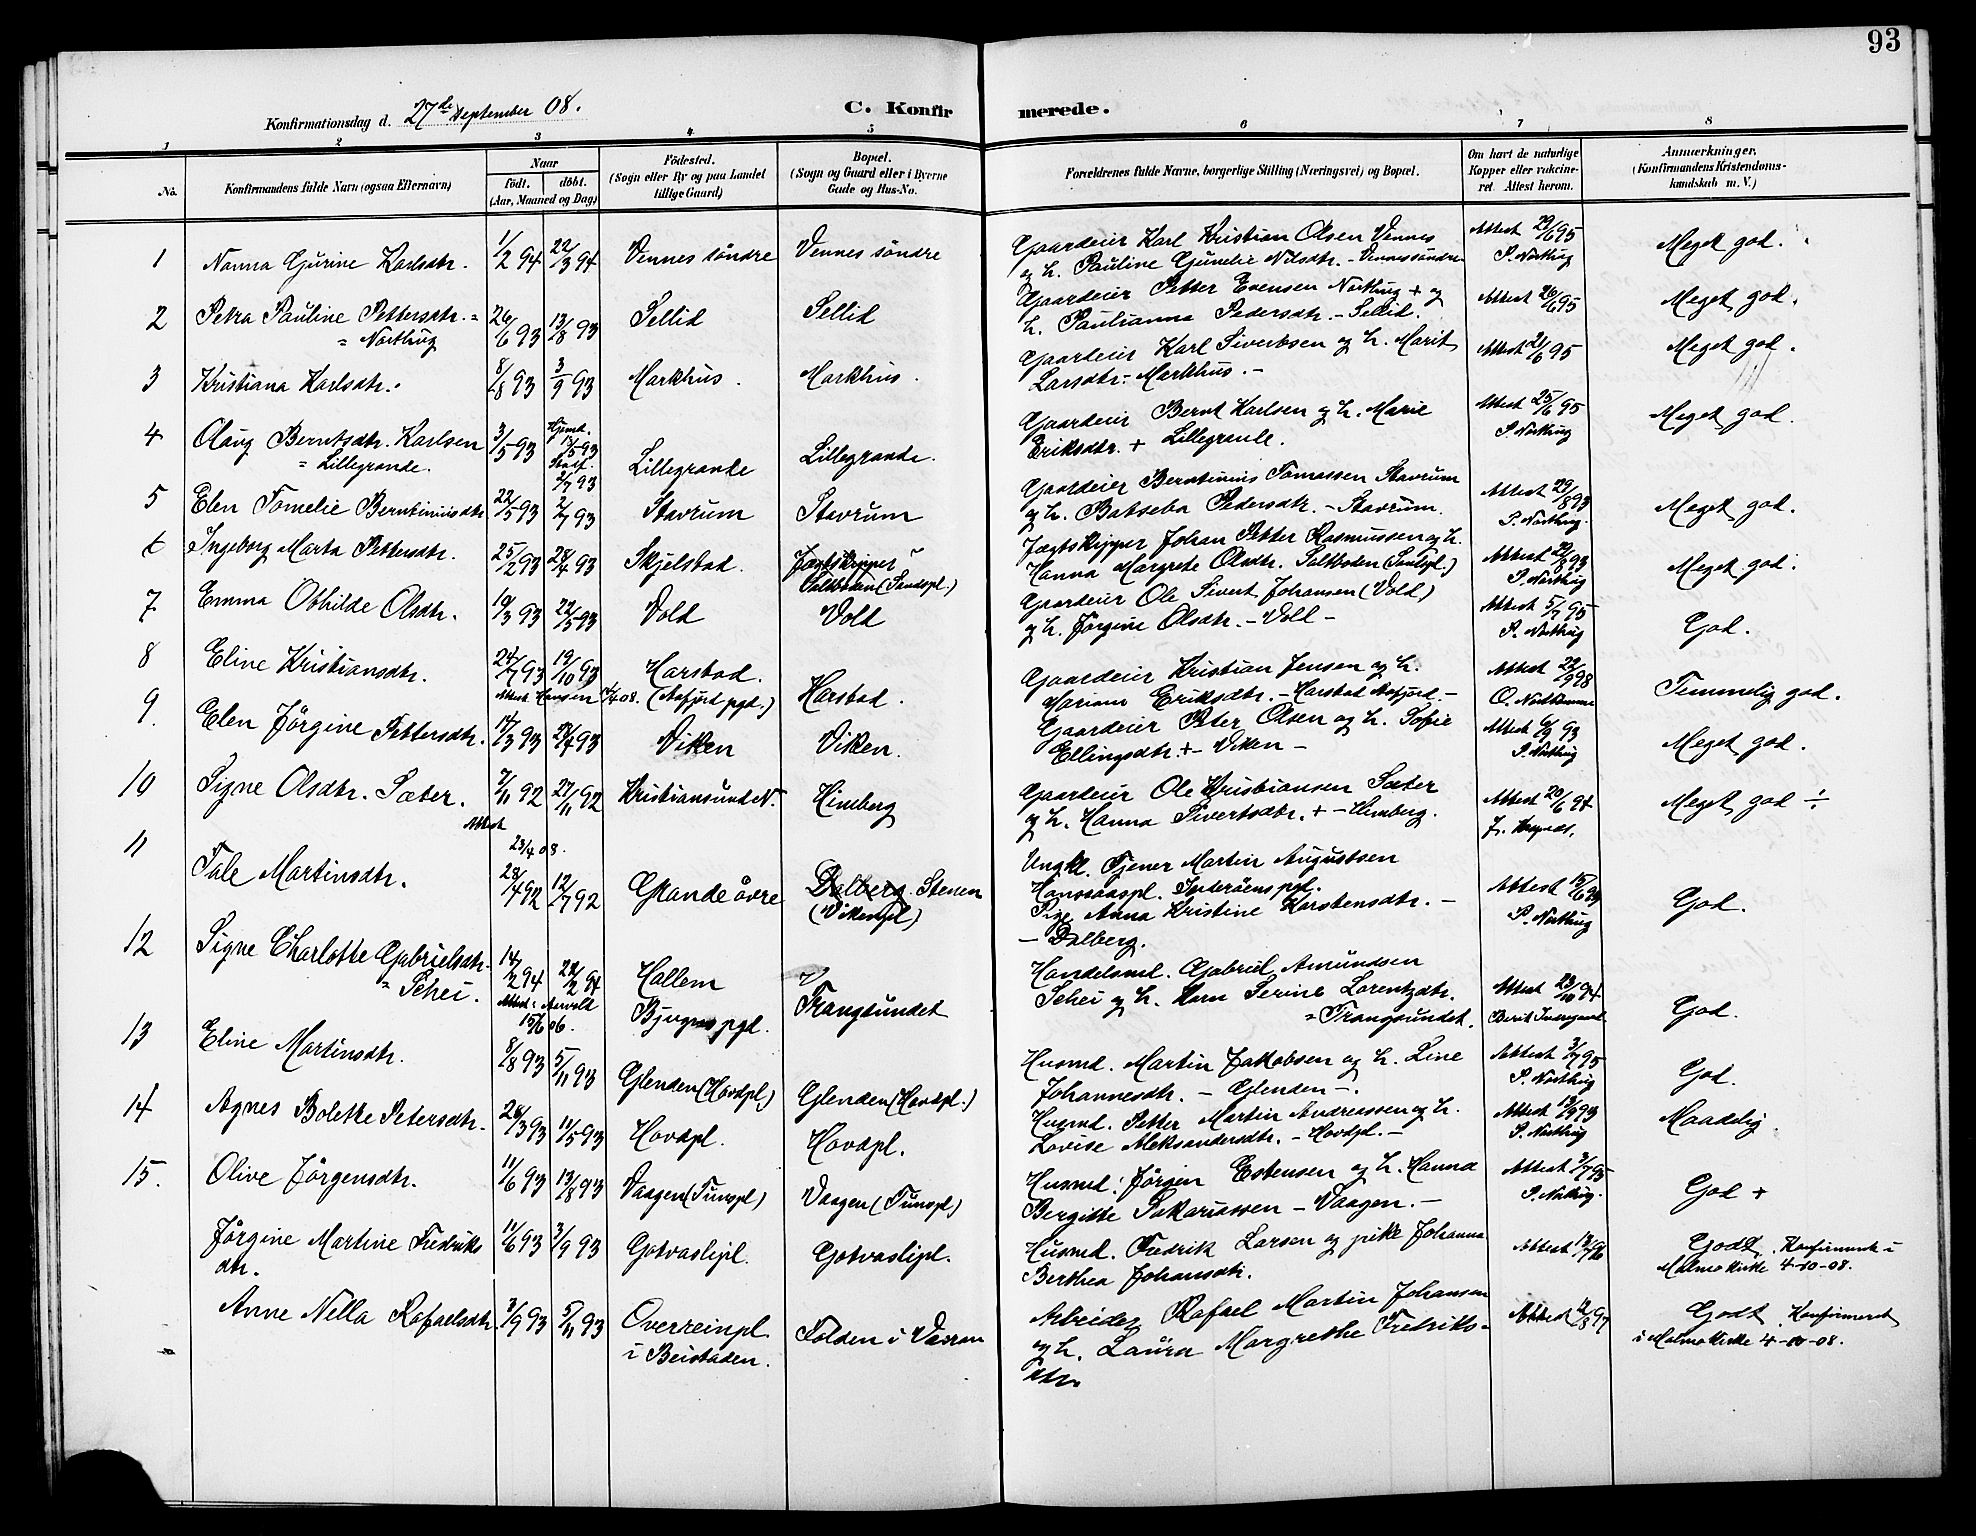 93
Konfirmationsdag d. 27de September 08.
C. Konfirmerede.
1 2 3 4 5 6 7 8
No.
Konfirmandens fulde Navn (ogsaa Efternavn)
Naar
födt. döbt.
(Aar, Maaned og Dag)
Födested.
(Sogn eller By og paa Landet
tillige Gaard)
Bopæl.
(Sogn og Gaard eller i Byerne
Gade og Hus-No.
Forældrenes fulde Navne, borgerlige Stilling (Næringsvei) og Bopæl.
Om havt de naturlige
Kopper eller vakcine-
ret. Attest herom.
Anmærkninger.
(Konfirmandens Kristendoms-
kundskab m. V.)
1 Nanna Gurine Karlsdtr. 1/2 94 22/3 94 Vennes söndre Vennes söndre
Gaardeier Karl Kristian Olsen Vennes
og h. Pauline Gunelie Nilsdtr. - Vennes söndre
Attest 29/6 95
P. Northug
Meget god.
2 Petra Pauline Pettersdtr. =
= Northug
26/6 93 13/8 93 Sellid Sellid
Gaardeier Petter Evensen Northug + og
h. Paulianna Pedersdtr. - Sellid.
Attest 26/6 95 Meget god.
3 Kristiana Karlsdtr. 8/8 93 3/9 93 Markhus. Markhus.
Gaardeier Karl Sivertsen og h. Marit
Larsdtr. - Markhus. -
Attest 21/6 95 Meget god.
4 Olaug Berntsdtr. Karlsen
= Lillegrande.
3/5 93 Hjemd.
13/5 93
Stadf.
2/7 93
Lillegrande Lillegrande.
Gaardeier Bernt Karlsen og h. Marie
Eriksdtr. + Lillegrande.
Attest 25/6 95
P. Northug
Meget god.
5 Elen Tomelie Berntinusdtr 22/5 93 2/7 93 Stavrum Stavrum
Gaardeier Berntinus Tomassen Stavrum
og h. Batseba Pedersdtr. - Stavrum.
Attest 29/8 93
P. Northug.
Meget god.
6 Ingeborg Marta Pettersdtr. 25/2 93 28/4 93 Skjelstad. Jægtskipper
Saltboden (Sandspl.)
Jægtskipper Johan Petter Rasmussen og h.
Hanna Margrete Olsdtr. Saltboden (Sandspl.)
Attest 29/8 93
P. Northug
Meget god.
7 Emma Othilde Olsdtr. 19/3 93 22/5 93 Vold Vold
Gaardeier Ole Sivert Johansen (Vold)
og h. Jörgine Olsdtr. - Vold -
Attest 5/7 95
P. Northug
God.
8 Eline Kristiansdtr. 24/7 93 19/10 93 Harstad.
(Aafjord pgd.)
Harstad.
Attest Hansen 08.
Gaardeier Kristian Jensen og h.
Mariane Eriksdtr. - Harstad Aafjord. -
Attest 22/9 98
O. 
Temmelig god.
9. Elen Jörgine Pettersdtr. 14/3 93 93 Viken Viken.
Gaardeier Peter Olsen og h. Sofie
Ellingsdtr. + - Viken -
Attest 6/9 93
P. Northug
Meget god.
10 Signe Olsdtr. Sæter. 7/11 92 27/11 92 Kristiansund N. Himberg
Gaardeier Ole Kristiansen Sæter
og h. Hanna Sivertsdtr. + - Himberg.
Attest 20/6 94
Meget god ÷
11 Tale Martinsdtr. Attest
23/4 08.
28/4 92 12/7 92 Grande övre Dalberg. Stenen
(Vikenpl)
Ungkl. Tjener Martin Augustsen
Hansaaspl. Inderöens pgd.
Pige Anna Kristine Karstensdtr. -
- Dalberg.
Attest
P. Northug
God.
12 Signe Charlotte Gabrielsdtr.
= Schei.
14/2 94 22/2 94
Attest = 
15/6 06.
Hallem
Bjugns pgd.
Trangsundet
Handelsmd. Gabriel Amundsen
Schei og h. Karn Serine Lorentzdtr.
= Trangsundet.
Attest 23/10 94
Berit 
God.
13 Eline Martinsdtr. 8/8 93 5/11 93 Glenden (Hovdpl) Glenden (Hovdpl.)
Husmd. Martin Jakobsen og h. Line
Johannesdtr. - Glenden -.
Attest 3/7 95
P. Northug
God.
14 Agnes Bolette Petersdtr. 28/3 93 11/5 93 Hovdpl. Hovdpl.
Husmd. Petter Martin Andreassen og h.
Lovise Aleksandersdtr. - Hovdpl. -
Attest 13/9 93
P. Northug
Maadelig.
15. Olive Jörgensdtr. 11/6 93 13/8 93 Vaagen (Tunspl) Vaagen (Tunspl)
Husmd. Jörgen Estensen og h. Hanna
Bergitte Sakariassen - Vaagen. -
Attest 3/7 95
P. Northug.
God +
Jörgine Martine Fredriks
dtr.
11/6 93 3/9 93 Gotvaslipl. Gotvaslipl.
Husmd. Fredrik Larsen og pike Johanna
Berthea Johansdtr.
Attest
Godt. Konfirmerede i
Malmo Kirke 4-10-08.
Anne Nella Rafaelsdtr. 3/9 93 5/11 93 Overreinpl
i Beistaden.
Folden i Værran
Arbeider Rafael Martin Johansen
og h. Laura Margrethe Fredriks-
dtr.
Attest 12/8 97
Godt. Konfirmeret
i Malmo Kirke 4-10-08.